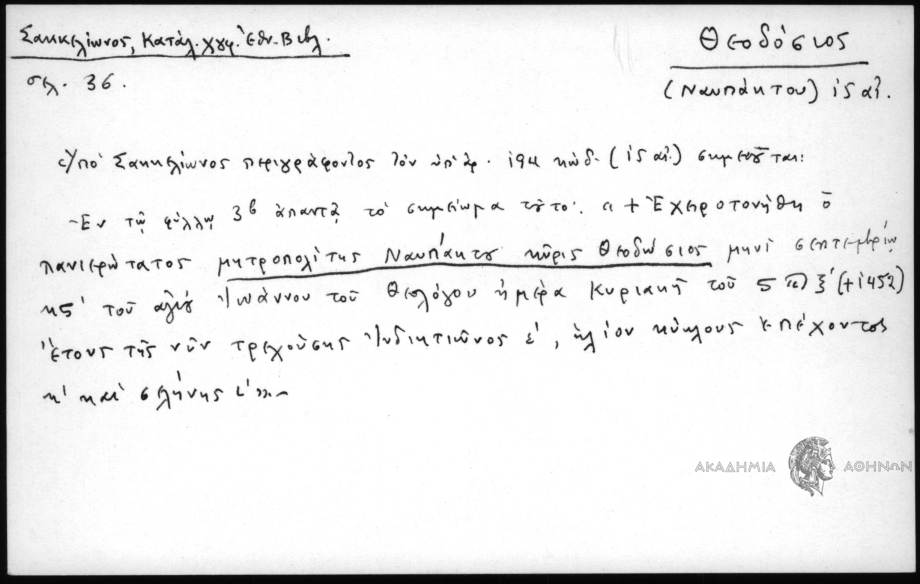 Σακκελίωνος, Κατάλ. χγφ. Ἐθν. Βιβλ.
Θεοδόσιος
σελ. 36.
(Ναυπάκτου) ις αἰ.
Ὑπὸ Σακκελίωνος περιγράφοντος τὸν ὑπ' ἀρ. 194 κώδ. (ις αἰ.) σημειοῦται:
Ἐν τῷ φύλλῳ 3β ἀπαντᾷ τὸ σημείωμα τοῦτο. « + Ἐχειροτονήθη ὁ
πανιερώτατος μητροπολίτης Ναυπάκτου κῦρις Θεοδώσιος μηνὶ σεπτεμβρίῳ
κς' τοῦ ἁγίου Ἰωάννου τοῦ Θεολόγου ἡμέρᾳ Κυριακῇ τοῦ (+1452)
ἔτους τῆς νῦν τρεχούσης Ἰνδικτιῶνος ε', ἡλίου κύκλους ἐπέχοντος
κ' καὶ σελήνης ι'».
ΑΚΑΔΗΜΙΑ ΑΘΗΝΩΝ